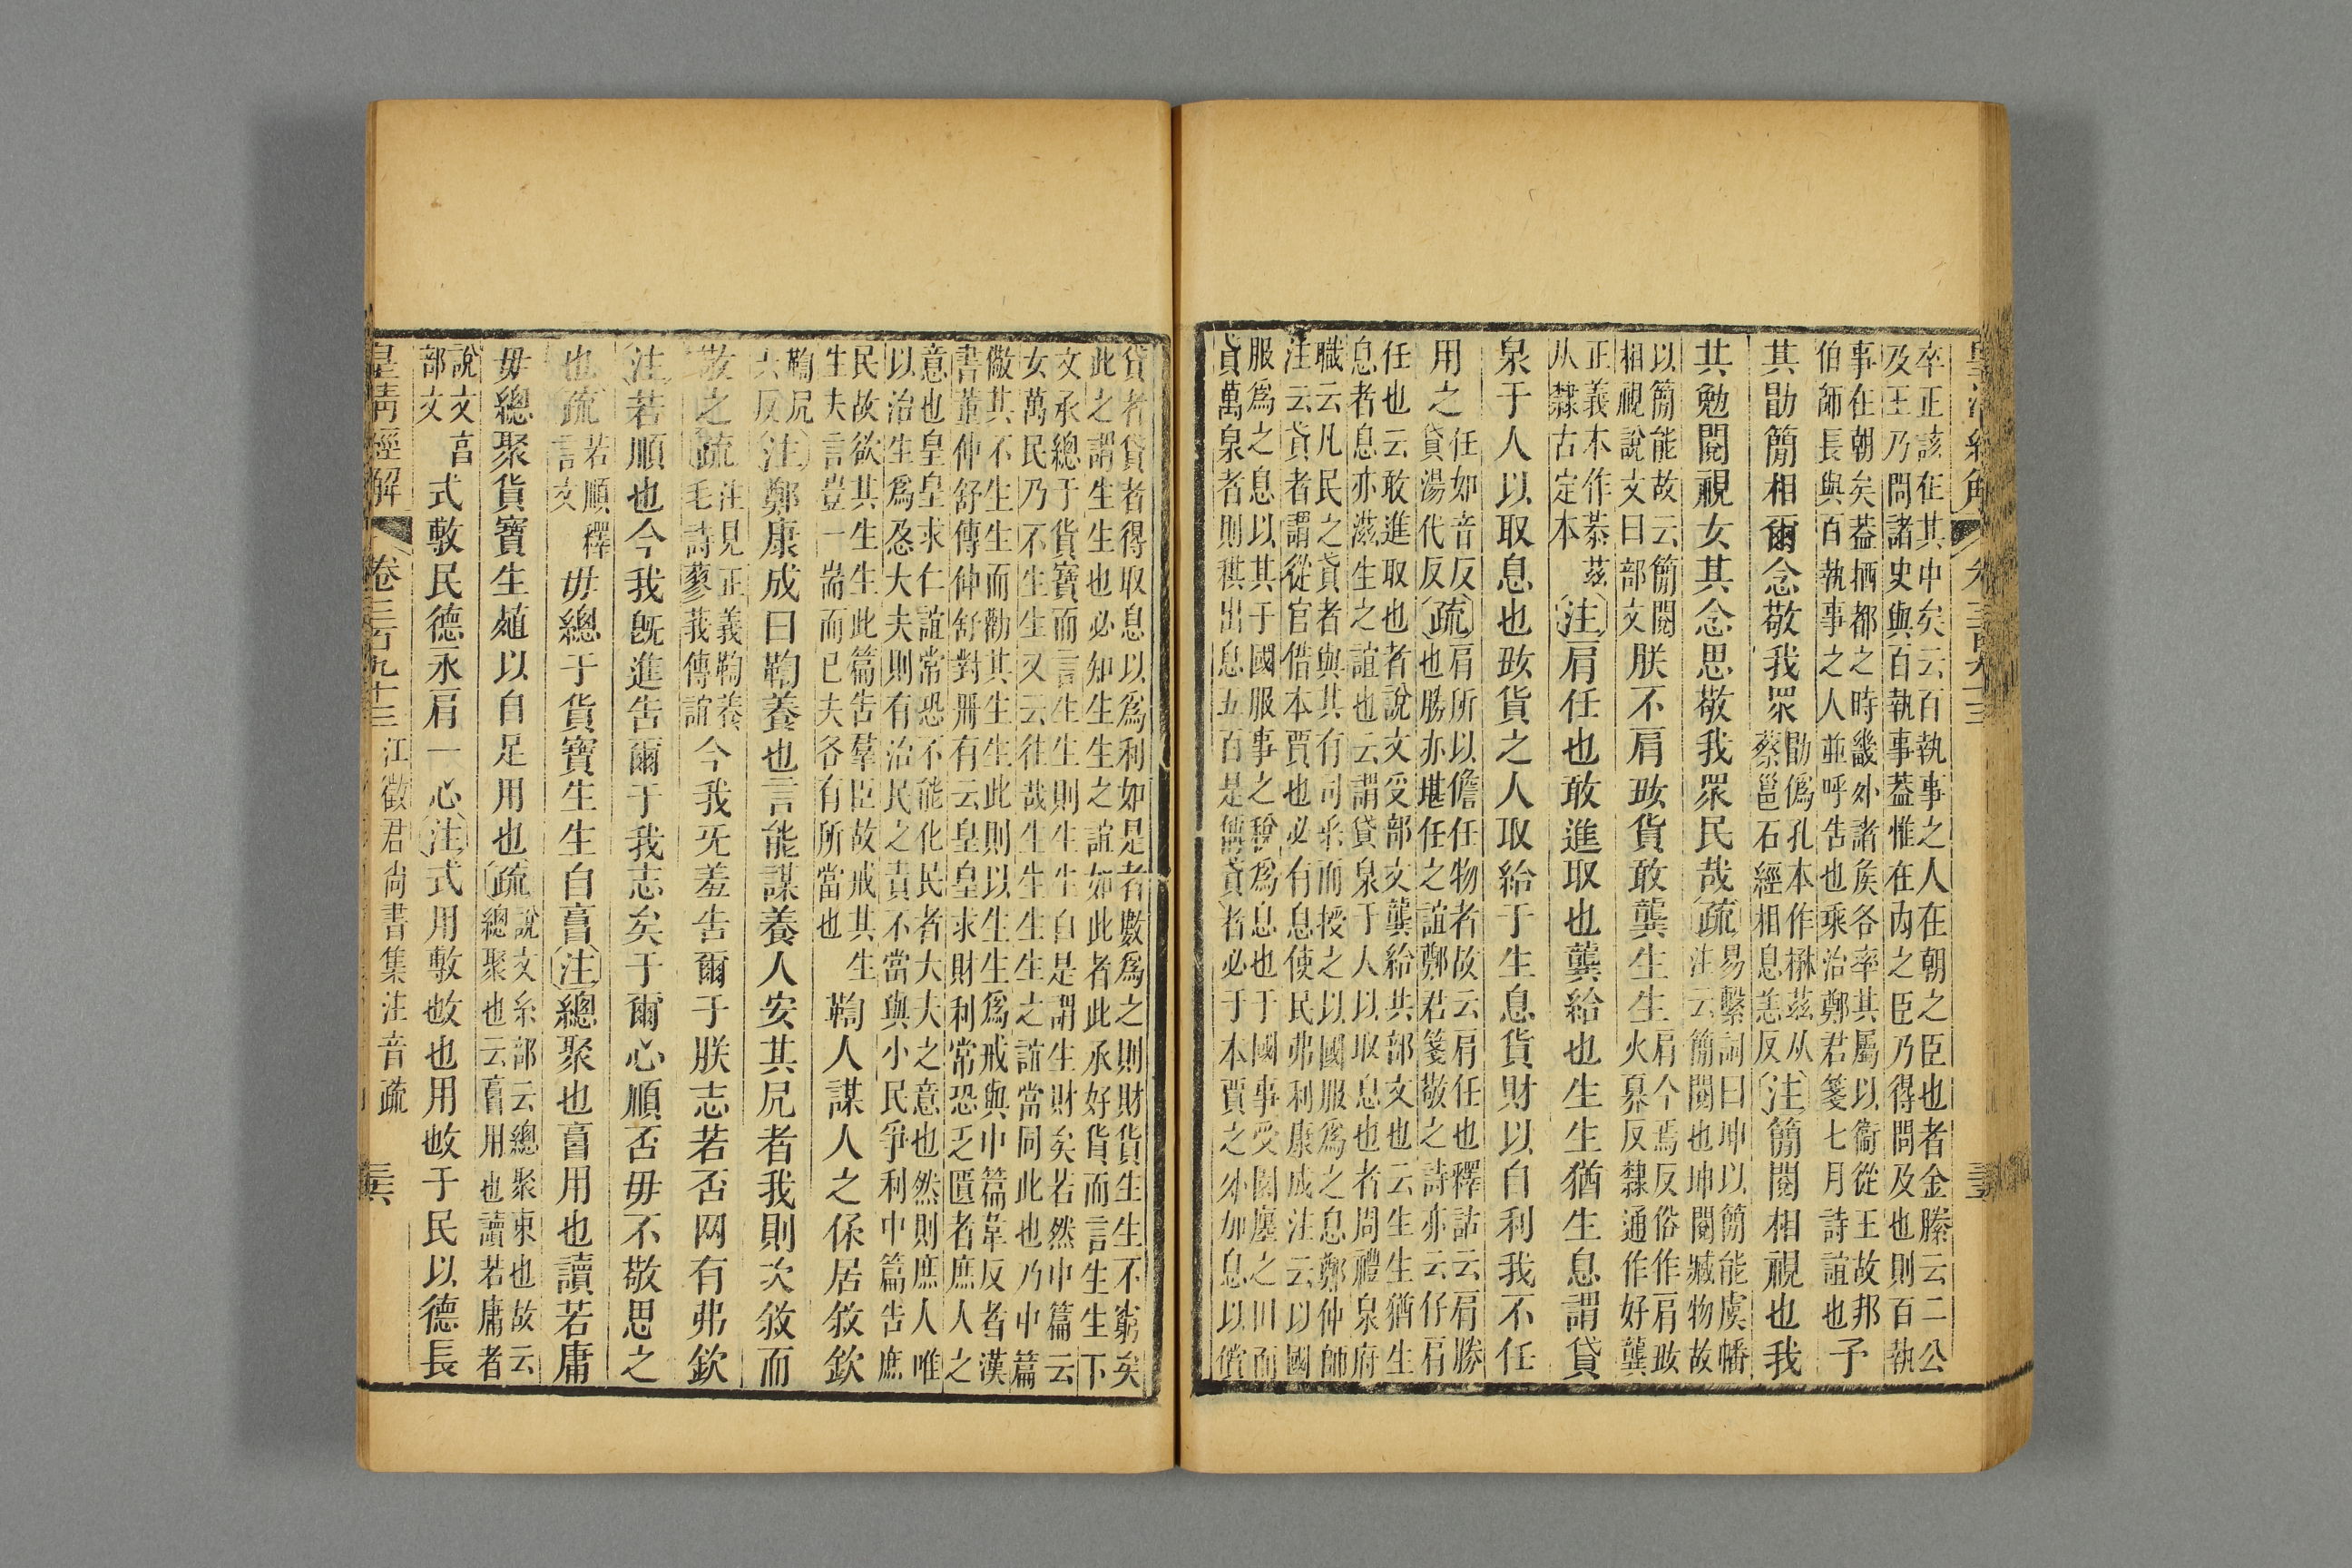 卒正該在其中矣云百執事之人在朝之臣也者金縢云二公
及王乃問諸史與百執事蓋惟在內之臣乃得問及也則百執
事在朝矣葢栖都之時畿外諸矦各率其屬以衞從王故邦
伯師長與百執事之人並呼吿也乘治鄭君箋七月詩誼也
予
其勖簡相爾念敬我眾
勖僞孔本作楙茲从
蔡邕石經相息恙反
注簡閱相視也我
其勉閱視女其念思敬我眾民哉疏
易繫詞曰坤以簡能虞幡
注云簡閱也坤閱臧物故
以簡能故云簡閱
相視說文曰部文
朕不肩㺹貨敢龔生生
肩今焉反俗作肩㺹
火募反隸通作好龔
正義本作恭茲
从隸古定本
注肩任也敢進取也龔給也生生猶生息謂貸
泉于人以取息也㺹貨之人取給于生息貨財以自利我不任
用之
任如音反
貸湯代反
疏
肩所以儋任物者故云肩任也釋詁云肩勝
也勝亦堪任之誼鄭君箋敬之詩亦云仔肩
任也云敢進取也者說文𠬪部文龔給共部文也云生生猶生
息者息亦滋生之誼也云謂貸泉于人以取息也者周禮泉府
職云凡民之貣者與其有司辨而授之以國服爲之息鄭仲師
注云貣者謂從官借本賈也必有息使民弗利康成注云以國
服爲之息以其于國服事之稅爲息也于國事受園廛之田而
貣萬泉者則稘出息五百是僃貣者必于本賈之外加息以償
貸者貸者得取息以爲利如是者數爲之則財貨生生不窮矣
此之謂生生也必知生生之誼如此者此承好貨而言生生下
文承總于貨寶而言生生則生生自是謂生財矣若然中篇云
女萬民乃不生生又云往哉生生生生之誼當同此也乃中篇
儆其不生生而勸其生生此則以生生爲戒與中篇韋反者漢
書董仲舒傳仲舒對冊有云皇皇求財利常恐乏匱者庶人之
意也皇皇求仁誼常恐不能化民者大夫之意也然則庶人唯
以治生爲恖大夫則有治民之責不當與小民爭利中篇吿庶
民故欲其生生此篇吿羣臣故戒其生
生夫言豈一耑而已夫各有所當也
鞫人謀人之保居敘欽
鞫凥
六反
注鄭康成曰鞫養也言能謀養人安其凥者我則次敘而
敬之疏
注見正義鞫養
毛詩蓼莪傳誼
今我旡羞吿爾于朕志若否网有弗欽
注若順也今我旣進吿爾于我志矣于爾心順否毋不敬思之
也疏
若順釋
言文
毋總于貨寶生生自亯注總聚也亯用也讀若庸
毋總聚貨寶生殖以自足用也疏
說文糸部云總聚束也故云
總聚也云亯用也讀若庸者
說文亯
部文
式敷民德永肩一心注式用敷㪃也用㪃于民以德長
皇淸經解
卷三百九十三
江徵君尙書集注音疏